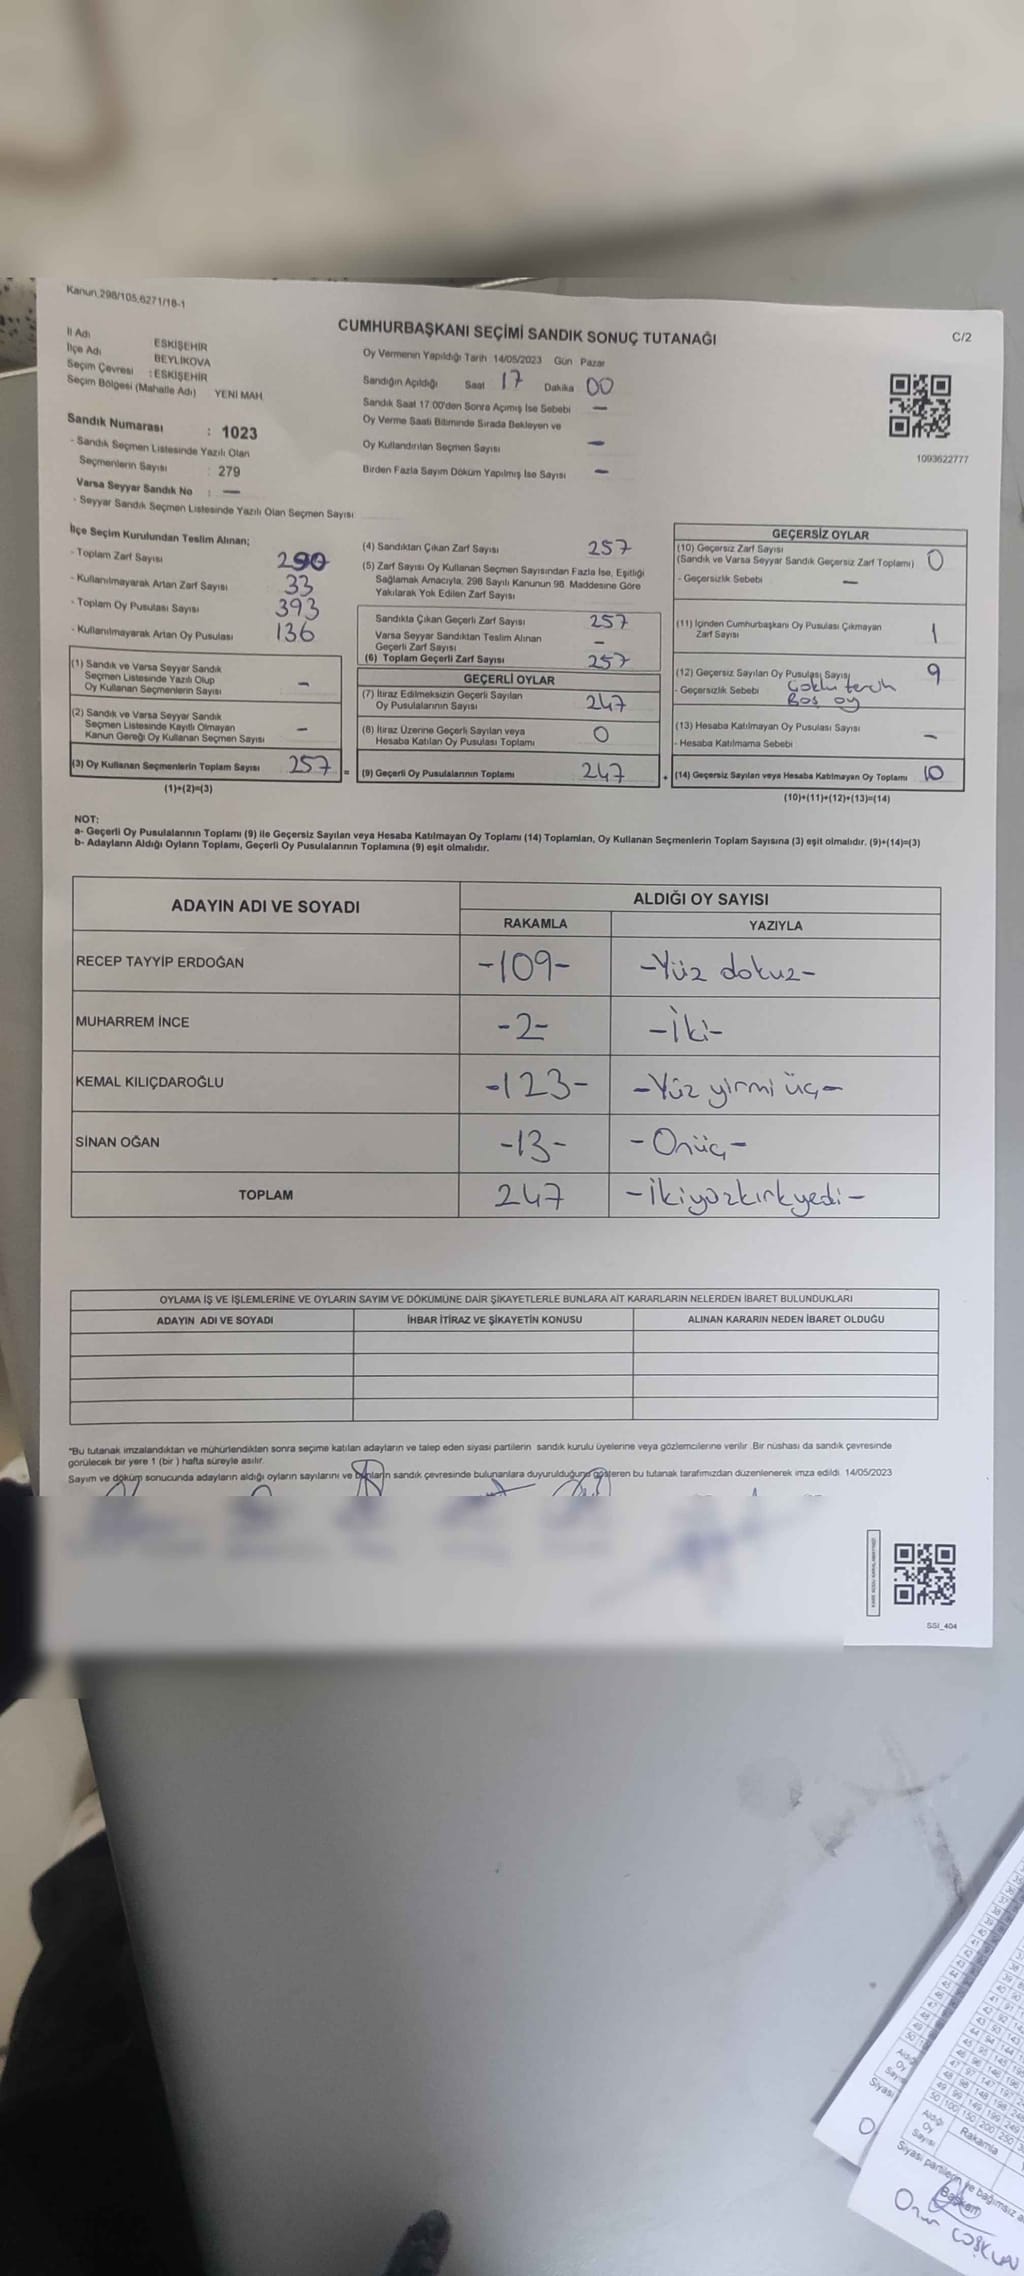 Kanun,298/105,6271/18-1
CUMHURBAŞKANI SEÇİMİ SANDIK SONUÇ TUTANAĞI
C/2
İl Adı ESKİŞEHİR
İlçe Adı BEYLİKOVA
Seçim Çevresi : ESKİŞEHİR
Seçim Bölgesi (Mahalle Adı) YENİ MAH.
Sandık Numarası : 1023
- Sandık Seçmen Listesinde Yazılı Olan
Seçmenlerin Sayısı : 279
Varsa Seyyar Sandık No : —
- Seyyar Sandık Seçmen Listesinde Yazılı Olan Seçmen Sayısı
Oy Vermenin Yapıldığı Tarih 14/05/2023 Gün Pazar
Sandığın Açıldığı Saat 17 Dakika 00
Sandık Saat 17:00'den Sonra Açımış İse Sebebi —
Oy Verme Saati Bitiminde Sırada Bekleyen ve
Oy Kullandırılan Seçmen Sayısı —
Birden Fazla Sayım Döküm Yapılmış İse Sayısı —
1093622777
İlçe Seçim Kurulundan Teslim Alınan;
- Toplam Zarf Sayısı 290
- Kullanılmayarak Artan Zarf Sayısı 33
- Toplam Oy Pusulası Sayısı 393
- Kullanılmayarak Artan Oy Pusulası 136
(1) Sandık ve Varsa Seyyar Sandık
Seçmen Listesinde Yazılı Olup
Oy Kullanan Seçmenlerin Sayısı —
(2) Sandık ve Varsa Seyyar Sandık
Seçmen Listesinde Kayıtlı Olmayan
Kanun Gereği Oy Kullanan Seçmen Sayısı —
(3) Oy Kullanan Seçmenlerin Toplam Sayısı 257 =
(1)+(2)=(3)
(4) Sandıktan Çıkan Zarf Sayısı 257
(5) Zarf Sayısı Oy Kullanan Seçmen Sayısından Fazla İse, Eşitliği
Sağlamak Amacıyla, 298 Sayılı Kanunun 98. Maddesine Göre
Yakılarak Yok Edilen Zarf Sayısı
Sandıkta Çıkan Geçerli Zarf Sayısı 257
Varsa Seyyar Sandıktan Teslim Alınan
Geçerli Zarf Sayısı —
(6) Toplam Geçerli Zarf Sayısı 257
GEÇERLİ OYLAR
(7) İtiraz Edilmeksizin Geçerli Sayılan
Oy Pusulalarının Sayısı 247
(8) İtiraz Üzerine Geçerli Sayılan veya
Hesaba Katılan Oy Pusulası Toplamı 0
(9) Geçerli Oy Pusulalarının Toplamı 247 +
GEÇERSİZ OYLAR
(10) Geçersiz Zarf Sayısı
(Sandık ve Varsa Seyyar Sandık Geçersiz Zarf Toplamı) 0
- Geçersizlik Sebebi —
(11) İçinden Cumhurbaşkanı Oy Pusulası Çıkmayan
Zarf Sayısı 1
(12) Geçersiz Sayılan Oy Pusulası Sayısı 9
- Geçersizlik Sebebi Çoklu tercih
Boş oy
(13) Hesaba Katılmayan Oy Pusulası Sayısı —
- Hesaba Katılmama Sebebi
(14) Geçersiz Sayılan veya Hesaba Katılmayan Oy Toplamı 10
(10)+(11)+(12)+(13)=(14)
NOT:
a- Geçerli Oy Pusulalarının Toplamı (9) ile Geçersiz Sayılan veya Hesaba Katılmayan Oy Toplamı (14) Toplamları, Oy Kullanan Seçmenlerin Toplam Sayısına (3) eşit olmalıdır. (9)+(14)=(3)
b- Adayların Aldığı Oyların Toplamı, Geçerli Oy Pusulalarının Toplamına (9) eşit olmalıdır.
ADAYIN ADI VE SOYADI ALDIĞI OY SAYISI
RAKAMLA YAZIYLA
RECEP TAYYİP ERDOĞAN -109- -Yüz dokuz-
MUHARREM İNCE -2- -İki-
KEMAL KILIÇDAROĞLU -123- -Yüz yirmi üç-
SİNAN OĞAN -13- -Onüç-
TOPLAM 247 -İkiyüzkırkyedi-
OYLAMA İŞ VE İŞLEMLERİNE VE OYLARIN SAYIM VE DÖKÜMÜNE DAİR ŞİKAYETLERLE BUNLARA AİT KARARLARIN NELERDEN İBARET BULUNDUKLARI
ADAYIN ADI VE SOYADI İHBAR İTİRAZ VE ŞİKAYETİN KONUSU ALINAN KARARIN NEDEN İBARET OLDUĞU
*Bu tutanak imzalandıktan ve mühürlendikten sonra seçime katılan adayların ve talep eden siyasi partilerin sandık kurulu üyelerine veya gözlemcilerine verilir. Bir nüshası da sandık çevresinde
görülecek bir yere 1 (bir ) hafta süreyle asılır.
Sayım ve döküm sonucunda adayların aldığı oyların sayılarını ve bunların sandık çevresinde bulunanlara duyurulduğunu gösteren bu tutanak tarafımızdan düzenlenerek imza edildi. 14/05/2023
SSI_404
Aldığı
Oy
Sayısı
Rakamla
Siyasi partilerin ve bağımsız
Başkan
Onur COŞKUN